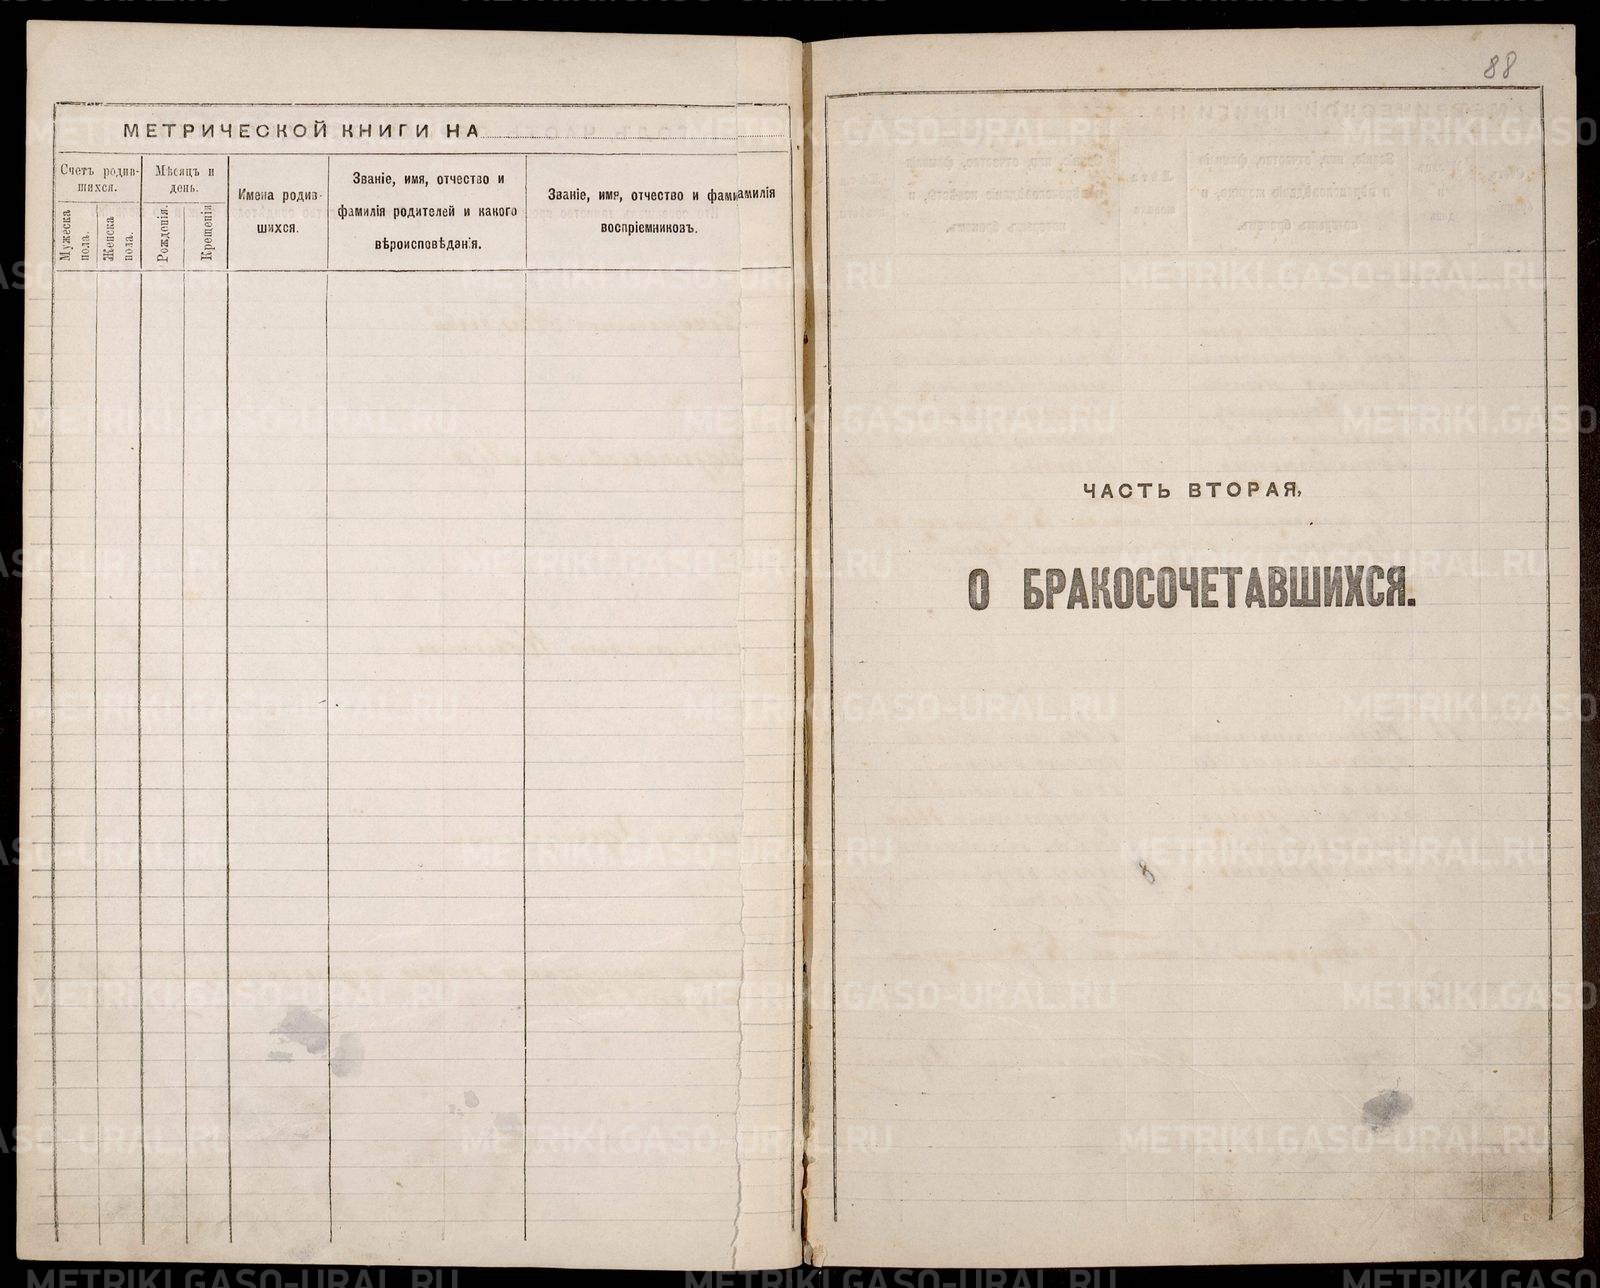 МЕТРИЧЕСКОЙ КНИГИ НА
Счетъ родив-
шихся.
Мужеска
пола.
Женска
пола.
Мѣсяцъ и
день.
Рожденія.
Крещенія
Имена родив-
шихся.
Званіе, имя, отчество и
фамилія родителей и какого
вѣроисповѣданія.
Званіе, имя, отчество и фами
воспріемниковъ.
амилія
88
ЧАСТЬ ВТОРАЯ,
О БРАКОСОЧЕТАВШИХСЯ.
8
METRIKI.GASO-URAL.RU